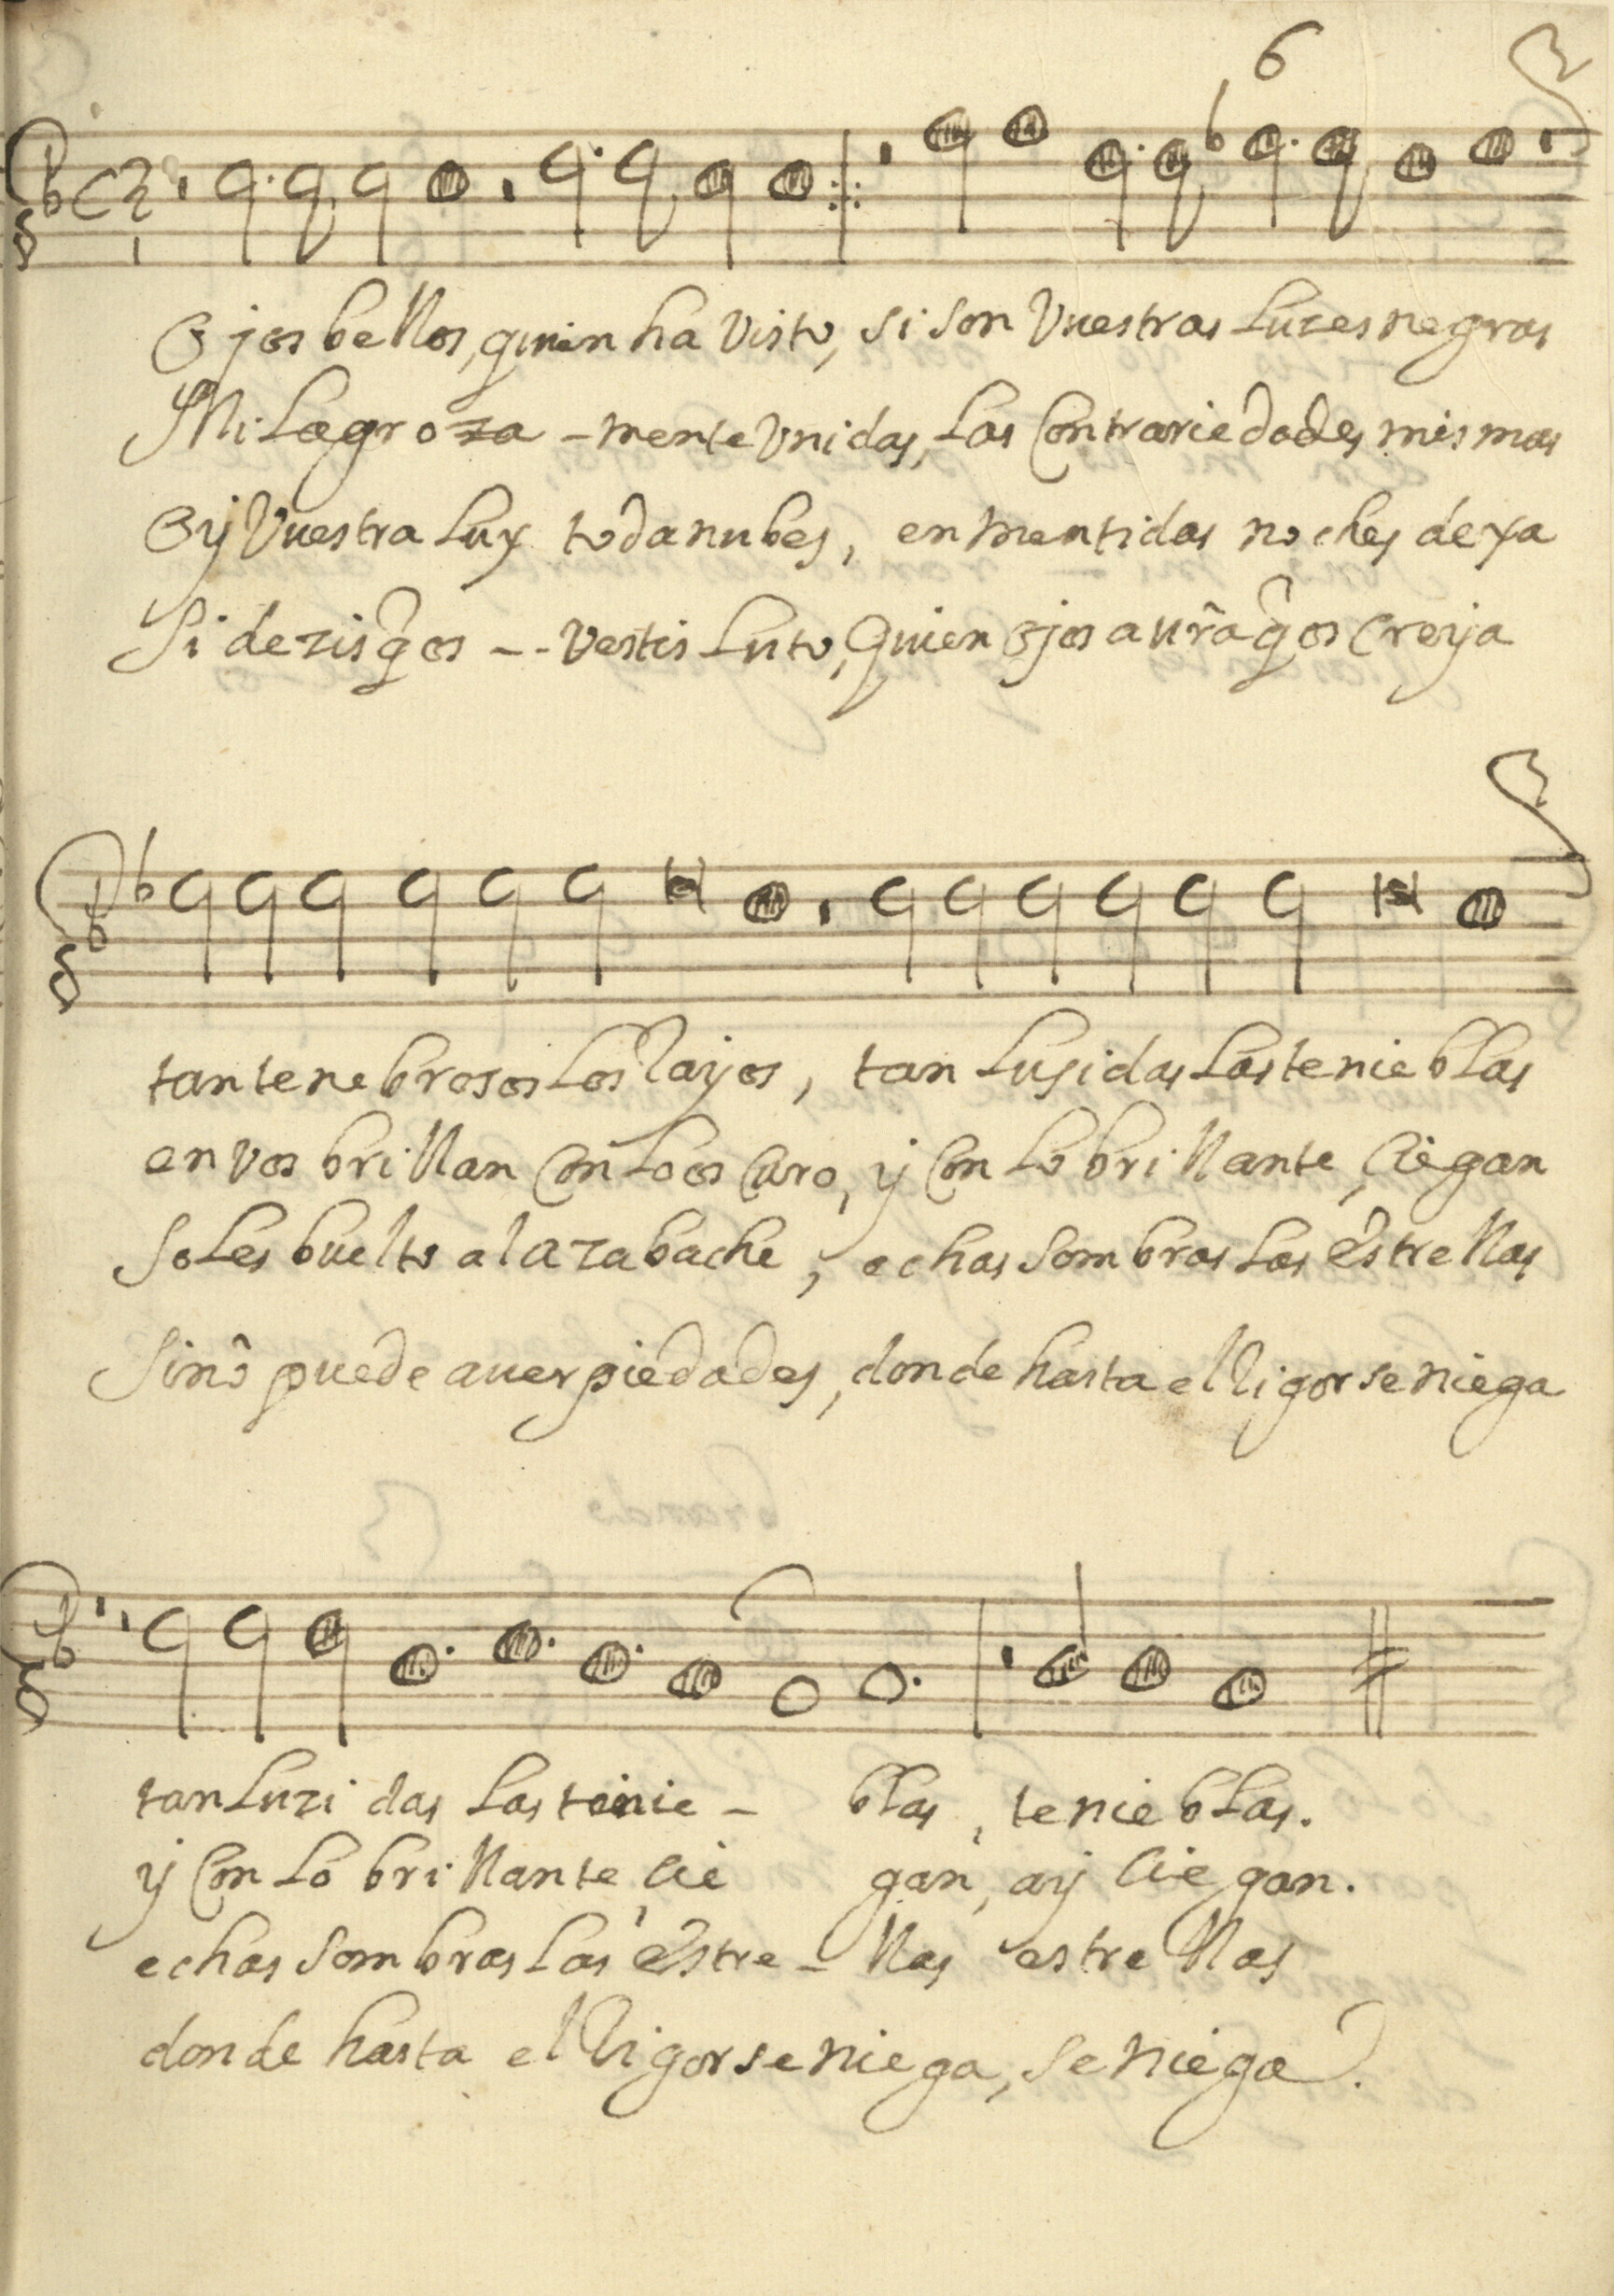 6
Ojos bellos, quien ha visto, si son vuestras luzes negras
Milagroza - mente vnidas, las Contrariedades mismas
Oy vuestra luz toda nubes, en mentidas noches dexa
Si dezis q̃ os -- vestis luto, quien ojos aurã q̃ os creya
tan tenebrosos los rayos, tan lusidas las tenieblas
en vos brillan Con lo oscuro, y Con lo brillante, ciegan
Soles buelto al azabache, echas sombras las estrellas
Sino puede auer piedades, donde hasta el rigor se niega
tan luzidas las tenie - blas, tenieblas.
y Con lo brillante, cie gan, ay ciegan.
echas sombras las estre - llas estrellas
donde hasta el rigor se niega, se niega.